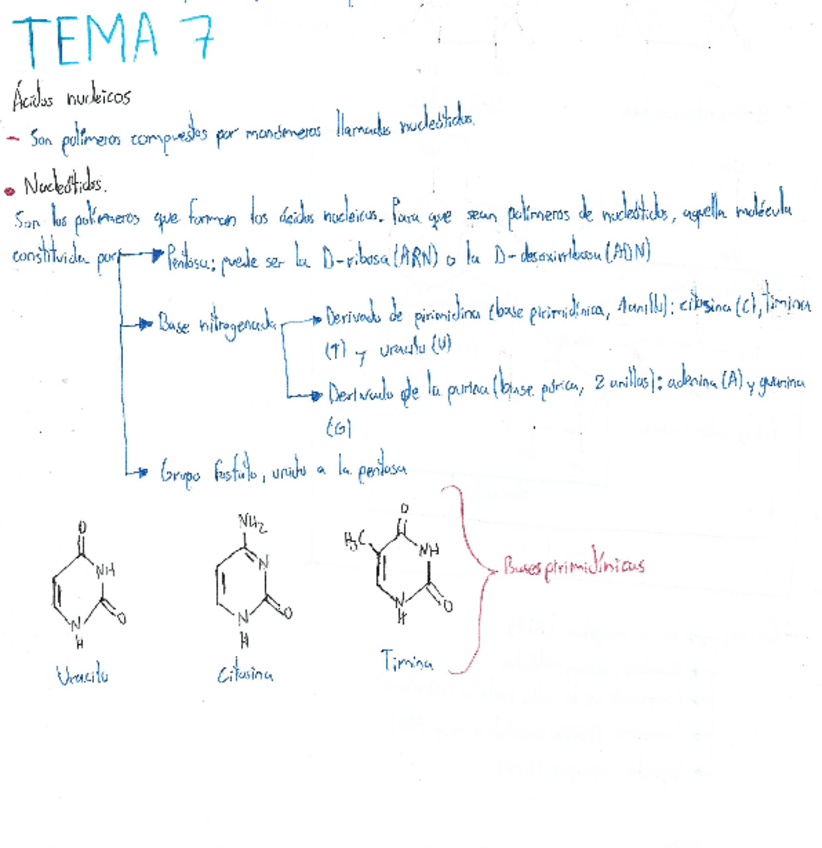 TEMA 7
Ácidos nucleicos
- Son polímeros compuestos por monómeros llamados nucleótidos.
• Nucleótidos.
Son los polímeros que forman los ácidos nucleicos. Para que sean polímeros de nucleótidos, aquella molécula
constituida por: Pentosa: puede ser la D-ribosa (ARN) o la D-desoxirribosa (ADN)
Base nitrogenada Derivado de pirimidina (base pirimidínica, 1 anillo): citosina (C), timina
(T) y uracilo (U)
Derivado de la purina (base púrica, 2 anillos): adenina (A) y guanina
(G)
Grupo fosfato, unido a la pentosa
O NH N H O
NH2 N N H O
H3C O NH N H O
Bases pirimidínicas
Uracilo Citosina Timina